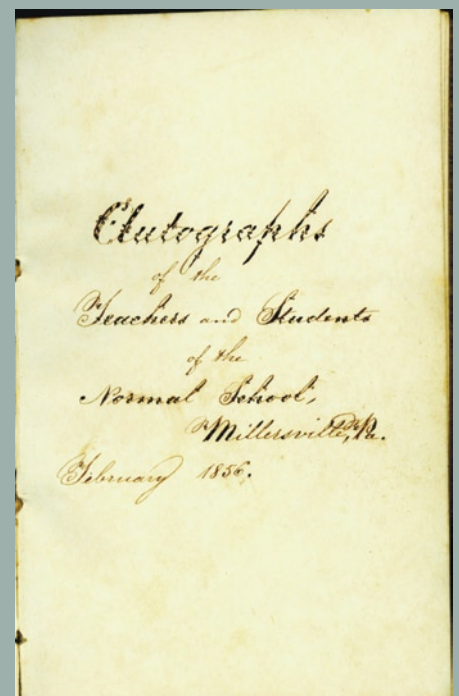 Autographs
of the
Teachers and Students
of the
Normal School,
Millersville, Pa.
February 1856.